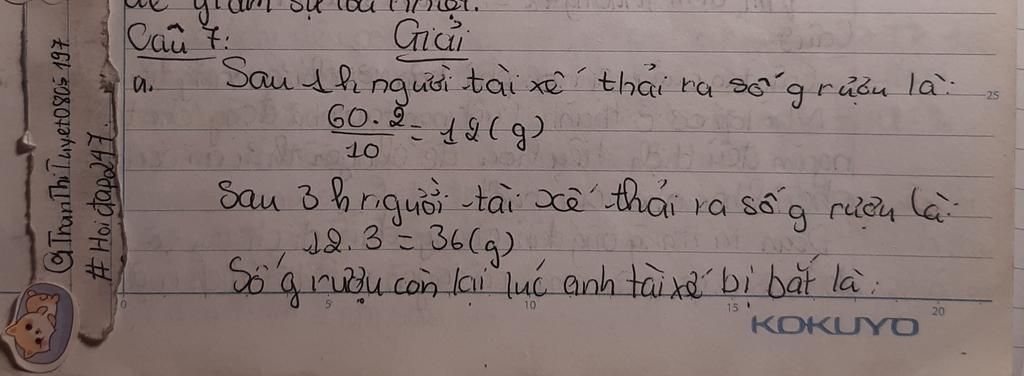 để giảm sự
Câu 7: Giải
a. Sau 1h người tài xế thải ra số g rượu là:
60.2/10 = 12(g)
Sau 3h người tài xế thải ra số g rượu là:
12.3 = 36(g)
Số g rượu còn lại lúc anh tài xế bị bắt là:
@TranThiTuyet0805197
#Hoidap247
25
0 5 10 15 20
KOKUYO